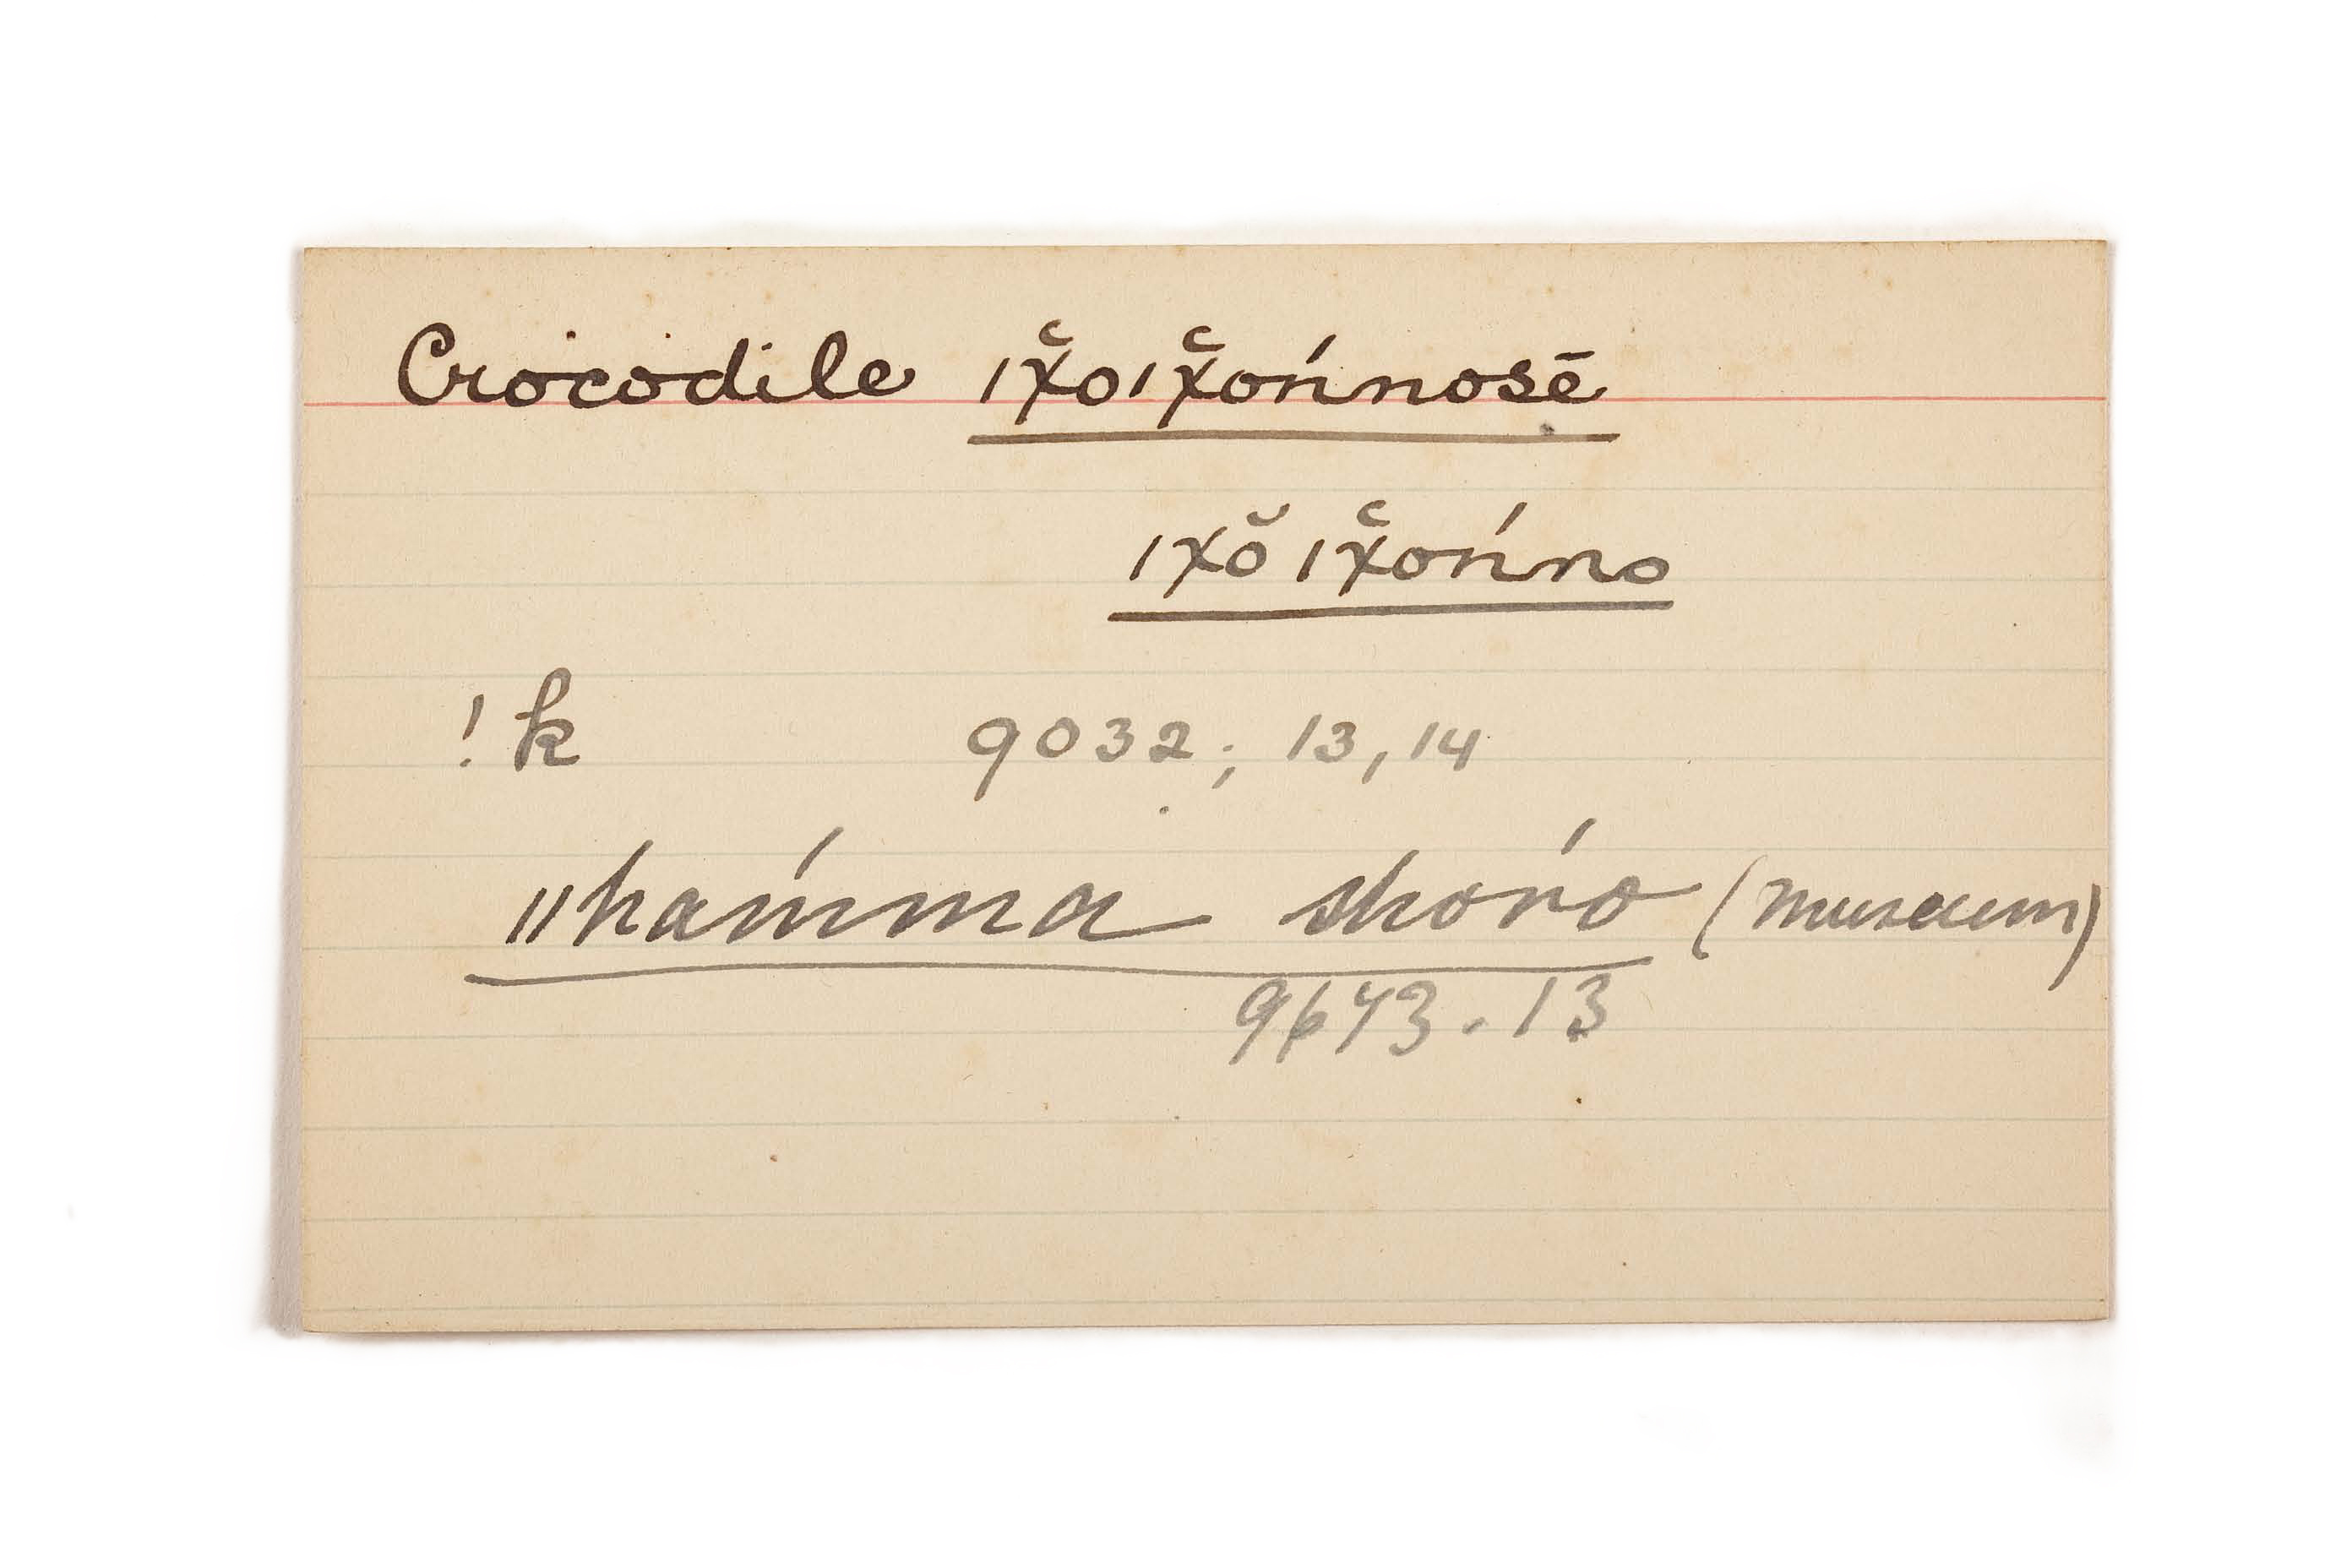 Crocodile ǀχ̆oǀχ̆ońnosē
ǀχŏ ǀχ̆ońno
!k 9032; 13, 14
ǁhaḿma shoŕo (museum)
9643. 13